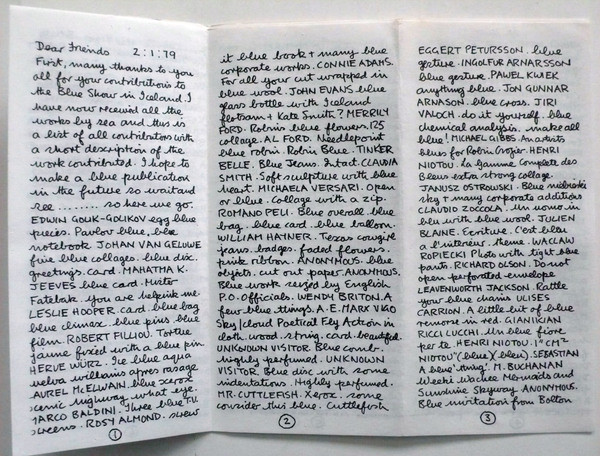 Dear Friends 2:1:79
First, many thanks to you
all for your contributions to
the Blue Show in Iceland. I
have now received all the
works by sea and this is
a list of all contributors with
a short description of the
work contributed. I hope to
make a blue publication
in the future so wait and
see ......... so here we go.
EDWIN GOLIK-GOLIKOV egg blue
pieces. Pavlov blue, blue
notebook JOHAN VAN GELUWE
five blue collages. blue disc.
greetings. card. MAHATMA K.
JEEVES blue card. Mister
Fatebak. you are helpink me.
LESLIE HOOPER card. blue bag
blue climax. blue pins blue
film. ROBERT FILLIOU. Tortue
jaune fixed with a blue pin
HERVE WÜRZ. Ice blue aqua
velva williams apres rasage
AUREL McELWAIN blue xerox
scenic highway what eye.
MARCO BALDINI. Three blue T.V.
screens. ROSY ALMOND. screw
1
it blue book + many blue
corporate works. CONNIE ADAMS.
For all your cut wrapped in
blue wool. JOHN EVANS blue
glass bottle with Iceland
flotsam + Kate Smith? MERRILY
FORD. Robins blue flowers. 125
collage. AL FORD. Needlepoint
blue robin. Robin Blue. TINKER
BELLE. Blue Jeans. Intact. CLAUDIA
SMITH. Soft sculpture with blue
heart. MICHAELA VERSARI. Open
or blue. Collage with a zip.
ROMANO PELI. Blue overall blue
bag. blue card. blue balloon.
WILLIAM HAINER. Texas cowgirl
jeans. badges. faded flowers.
pink ribbon. ANONYMOUS. blue
objects. cut out paper. ANONYMOUS.
Blue work seized by English
P.O. officials. WENDY BRITON. A
few blue things. A.E. MARX VIGO
Sky/cloud Poetical Fly Action in
cloth. wood. string. card. beautiful
UNKNOWN VISITOR. Blue comb.
Highly perfumed. UNKNOWN
VISITOR. Blue disc with some
indentations. Highly perfumed.
MR. CUTTLEFISH. Xerox. some
consider this blue. Cuttlefish
2
EGGERT PETURSSON. blue
gesture. INGOLFUR ARNARSSON
blue gesture. PAWEL KWIEK
anything blue. JON GUNNAR
ARNASON. blue cross. JIRI
VALOCH. do it yourself. blue
chemical analysis. make all
blue! MICHAEL GIBBS. An artists
blues for Robin Crozier. HENRI
NIOTOU. La Gamme Complete des
Bleus extra strong collage.
JANUSZ OSTROWSKI. Blue niebieski
sky + many corporate additions
CLAUDIO ZOCCOLA. un uomo in
blu with blue wool. JULIEN
BLAINE. Ecriture. C'est bleu
a l'interieur. theme. WACLAW
ROPIECKI Photo with tight blue
pants. RICHARD OLSON. Do not
open perforated envelope
LEAVENWORTH JACKSON. Rattle
your blue chains ULISES
CARRION. A little bit of blue
remorse in red. GIANIKIAN
RICCI LUCCHI. un blue fiore
per te. HENRI NIOTOU. 1" cm²
NIOTOU" (blue) (bleu). SEBASTIAN
A blue 'thing'. M. BUCHANAN
Weeki Wachee Mermaids and
Sunshine Skyway. ANONYMOUS.
Blue invitation from Bolton
3